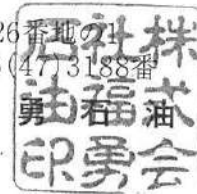 26番地の1
(47)3188番
勇石油
株式会社福勇石油印